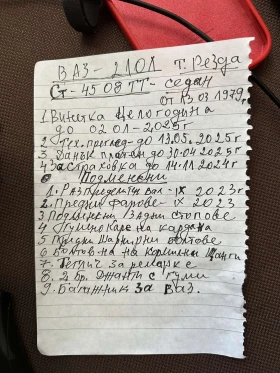 ВАЗ-2101 т. Резда
Ст-4508 ТТ-седан
от 1979г.
1. Винетка Целогодишна
до 02 01-2025г
2. Тех. преглед-до 13.05.2025г
3. Данък платен до 30.04 2025г
4. Застраховка до 14.11 2024г
Подменени
1. Разпределит. вал-IX 2023г
2. Предни фарове-IX 2023
3 Подменени Задни стопове
4 Гумено каре на кардана
5 Предни Шарнирни болтове
6 Болтове на Кормилни Щанги
7. Теглич за ремарке
8. 2 бр. Джанти с гуми
9. Багажник За ВАЗ.